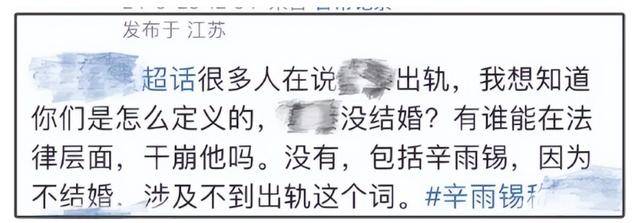 发布于 江苏
超话很多人在说 出轨，我想知道
你们是怎么定义的， 没结婚？有谁能在法
律层面，干崩他吗。没有，包括辛雨锡，因为
不结婚，涉及不到出轨这个词。#辛雨锡